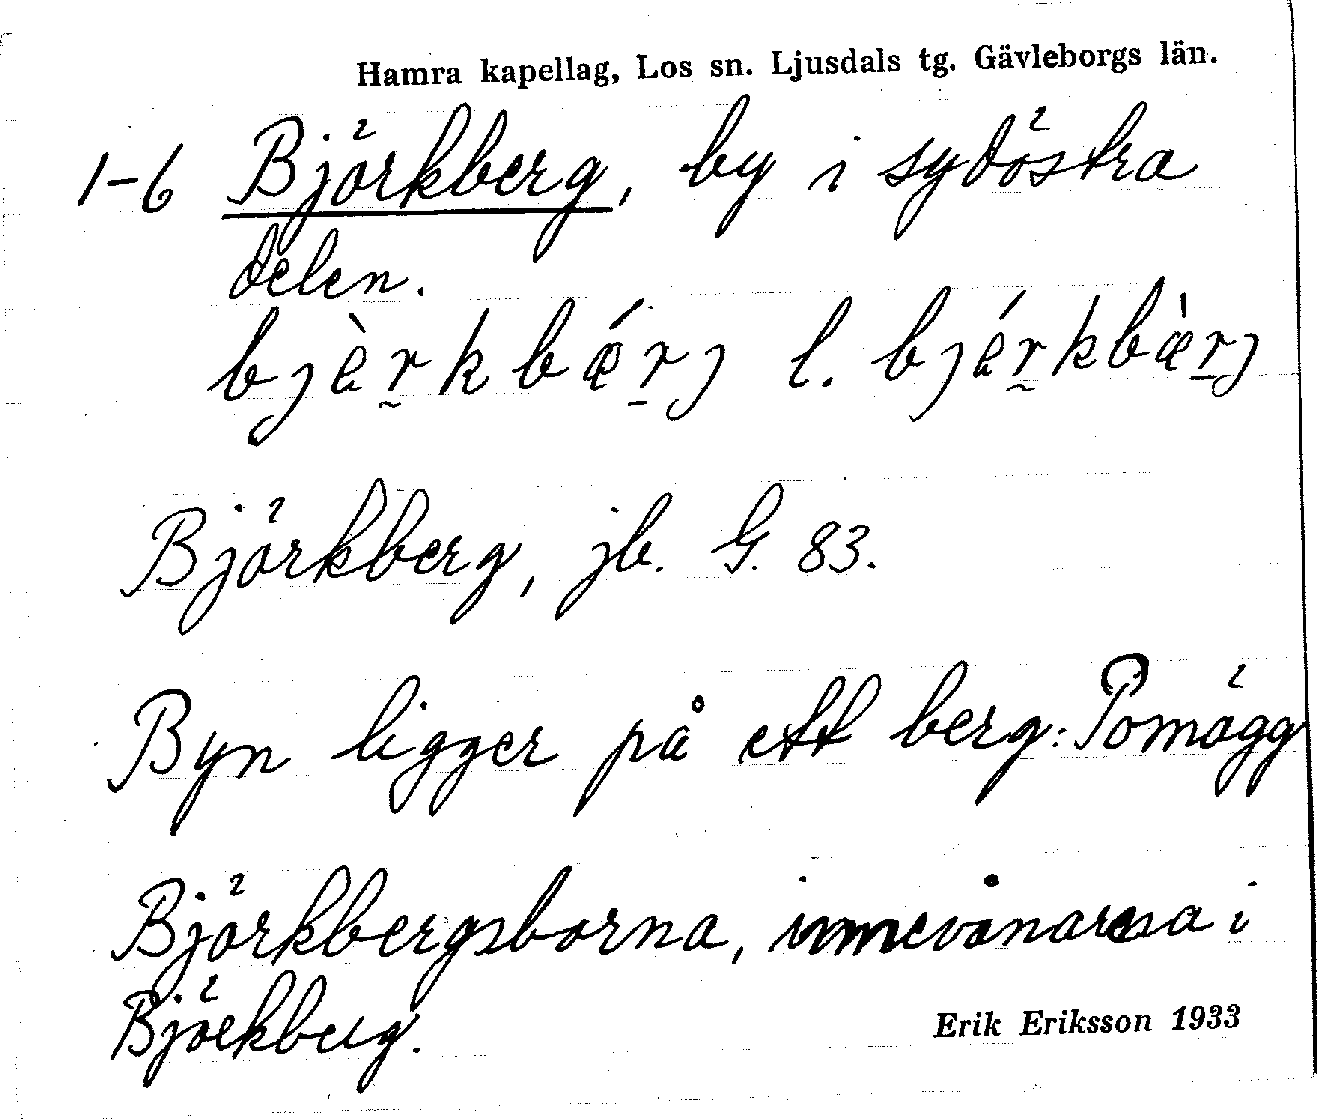 Hamra kapellag, Los sn. Ljusdals tg. Gävleborgs län.
1-6 Björkberg, by i sydöstra
delen.
bjèr̰kbǽr̠j l. bjér̰kbæ̀r̠j
Björkberg, jb. G. 83.
Byn ligger på ett berg: Pomägg
Björkbergsborna, innevånarna i
Björkberg.
Erik Eriksson 1933